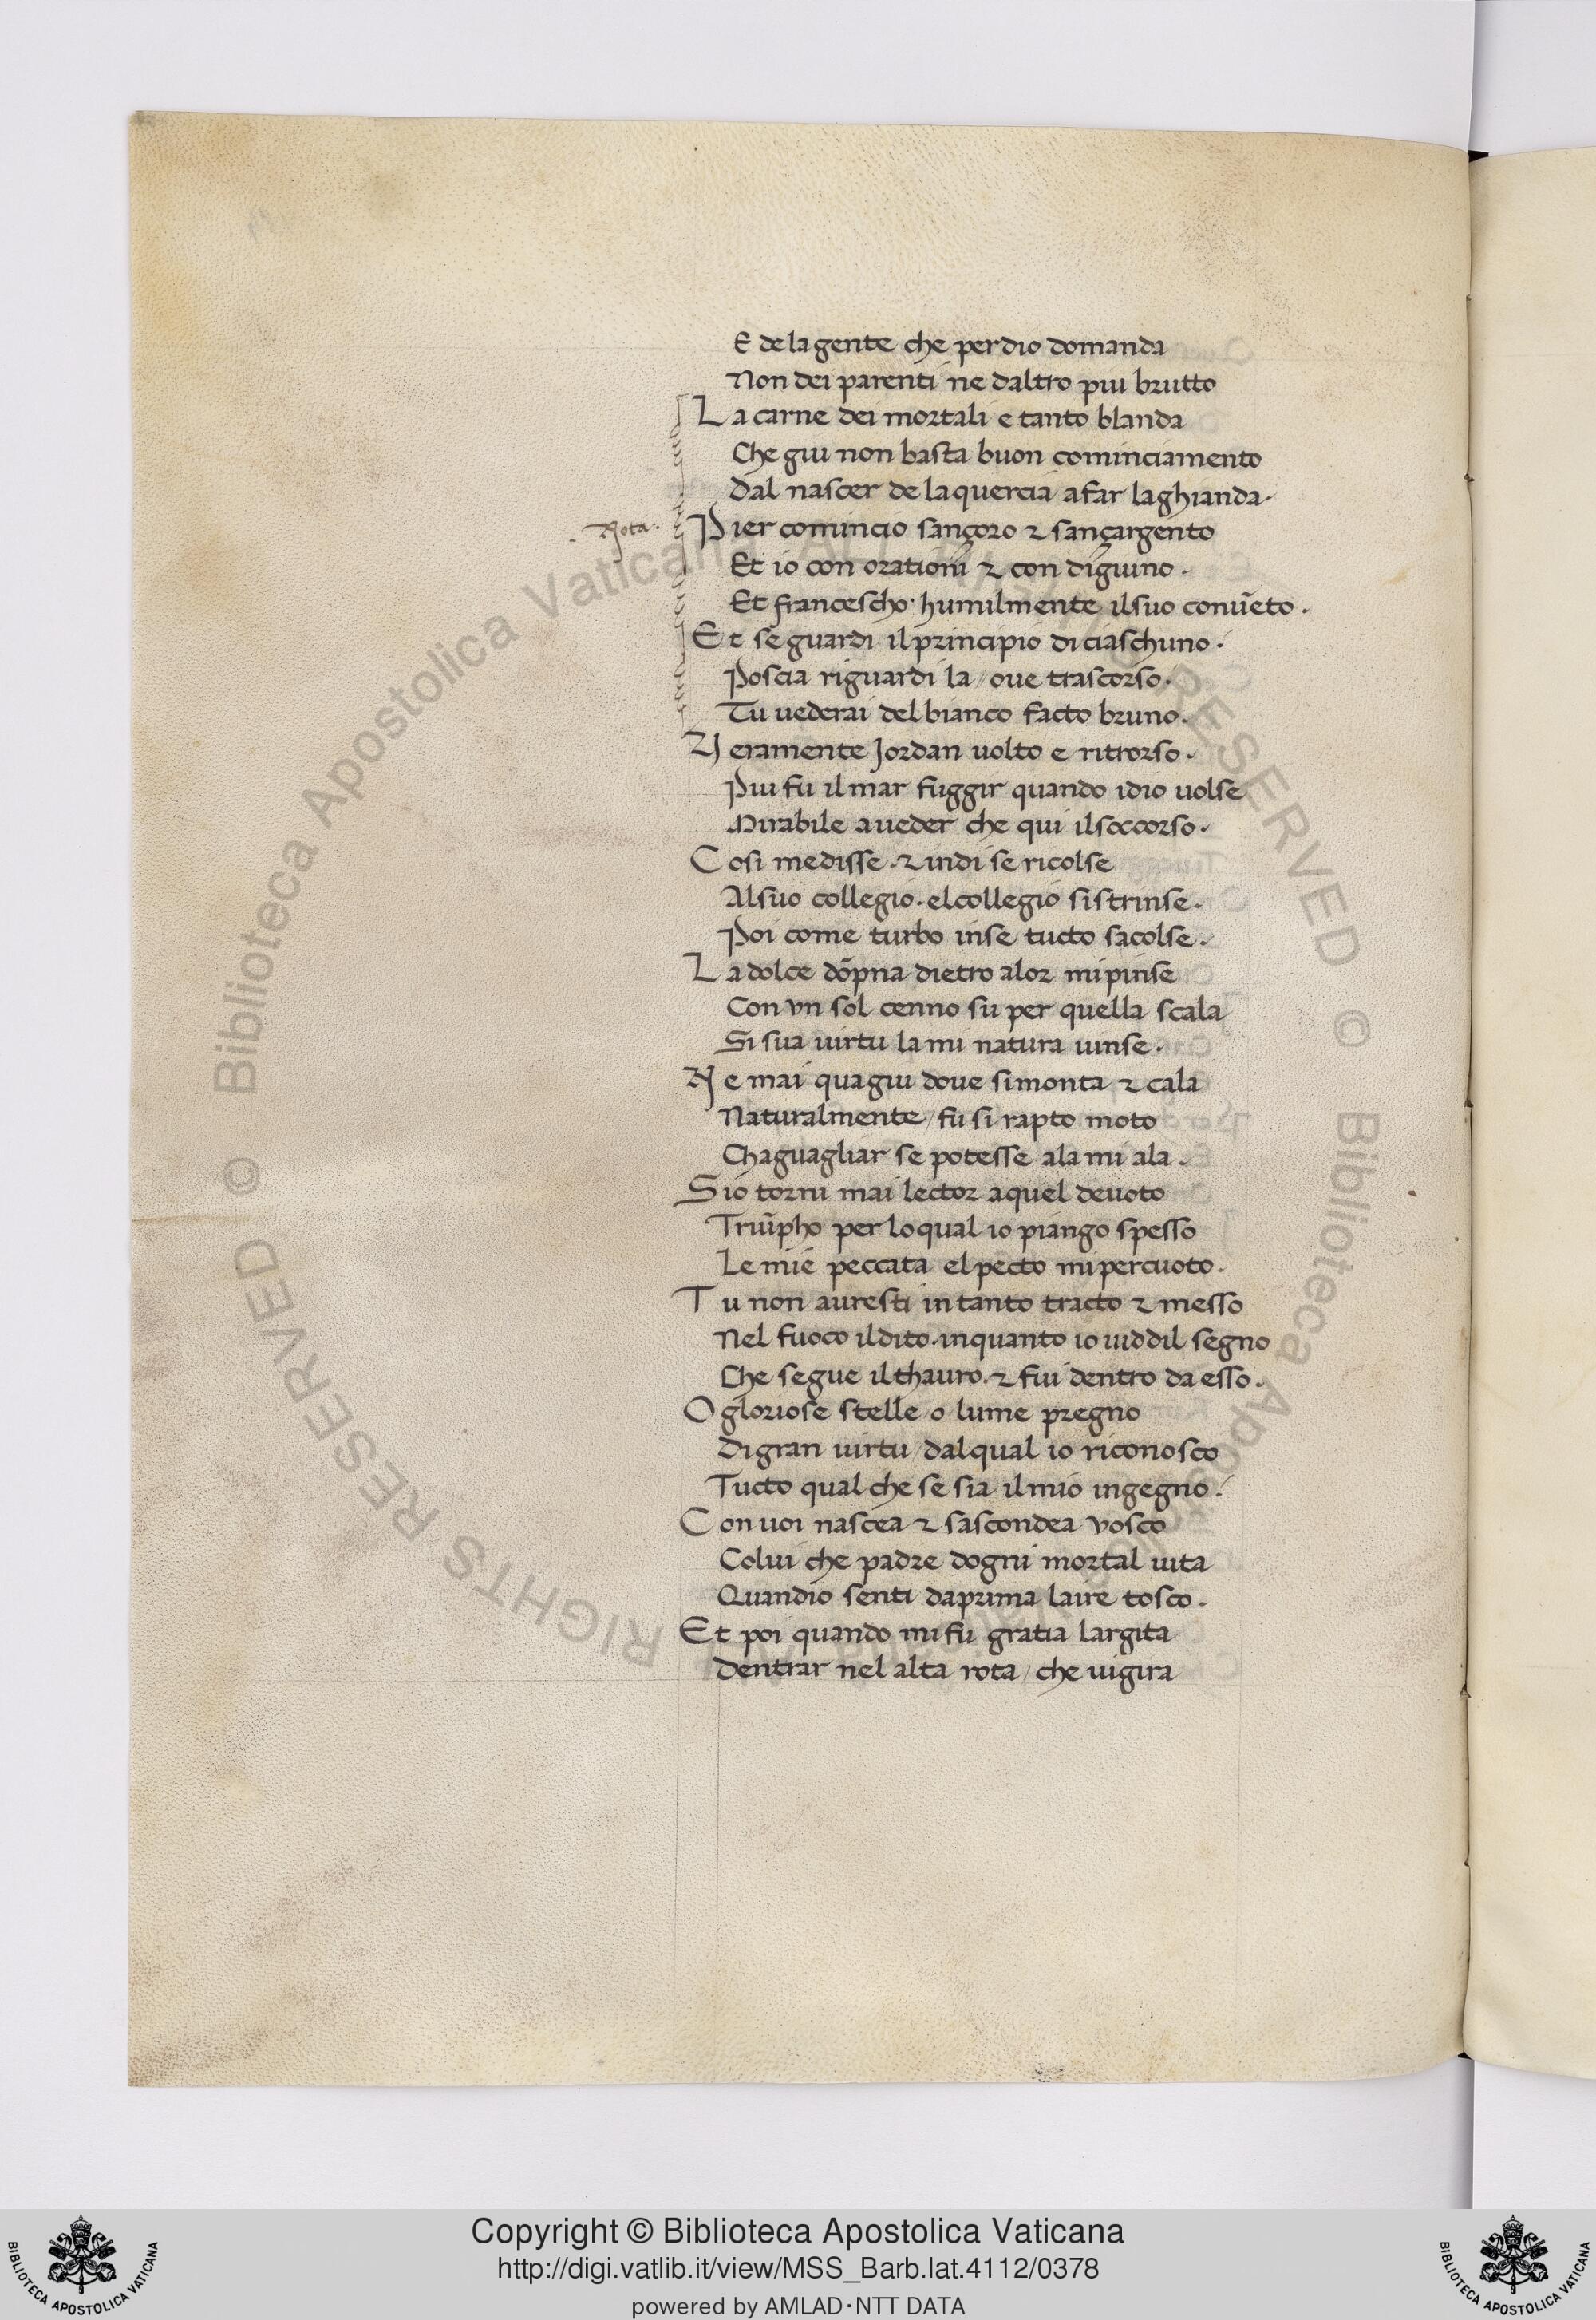 E de la gente che per dio domanda
Non dei parenti ne daltro piu brutto
La carne dei mortali e tanto blanda
Che giu non basta buon cominciamento
Dal nascer de la quercia a far la ghianda.
. Nota .
Pier comincio sançoro ⁊ sançargento
Et io con orationi ⁊ con digiuno .
Et francescho. humilmente il suo conuēto .
Et se guardi il principio di ciaschuno .
Poscia riguardi la / oue trascorso .
Tu uederai del bianco facto bruno .
Veramente Jordan uolto e ritrorso .
Piu fu il mar fuggir quando idio uolse
Mirabile a ueder che qui il soccorso .
Cosi me disse . ⁊ indi se ricolse
Al suo collegio . el collegio si strinse .
Poi come turbo in se tucto sacolse .
La dolce dōpna dietro a lor mi pinse
Con vn sol cenno su per quella scala
Si sua uirtu la mi natura uinse .
Ne mai qua giu doue si monta ⁊ cala
Naturalmente / fu si rapto moto
Chaguagliar se potesse a la mi ala .
Sio torni mai lector a quel deuoto
Triūpho per lo qual io piango spesso
Le mie peccata el pecto mi percuoto .
Tu non auresti in tanto tracto ⁊ messo
Nel fuoco il dito . in quanto io uiddil segno
Che segue il thauro . ⁊ fui dentro da esso .
O gloriose stelle / o lume pregno
Di gran uirtu / dal qual io riconosco
Tucto qual che se sia il mio ingegno .
Con uoi nascea ⁊ sascondea vosco
Colui che padre dogni mortal uita
Quandio senti da prima laire tosco .
Et poi quando mi fu gratia largita
Dentrar nel alta rota / che uigira
Copyright © Biblioteca Apostolica Vaticana
http://digi.vatlib.it/view/MSS_Barb.lat.4112/0378
powered by AMLAD·NTT DATA
BIBLIOTECA APOSTOLICA VATICANA
BIBLIOTECA APOSTOLICA VATICANA